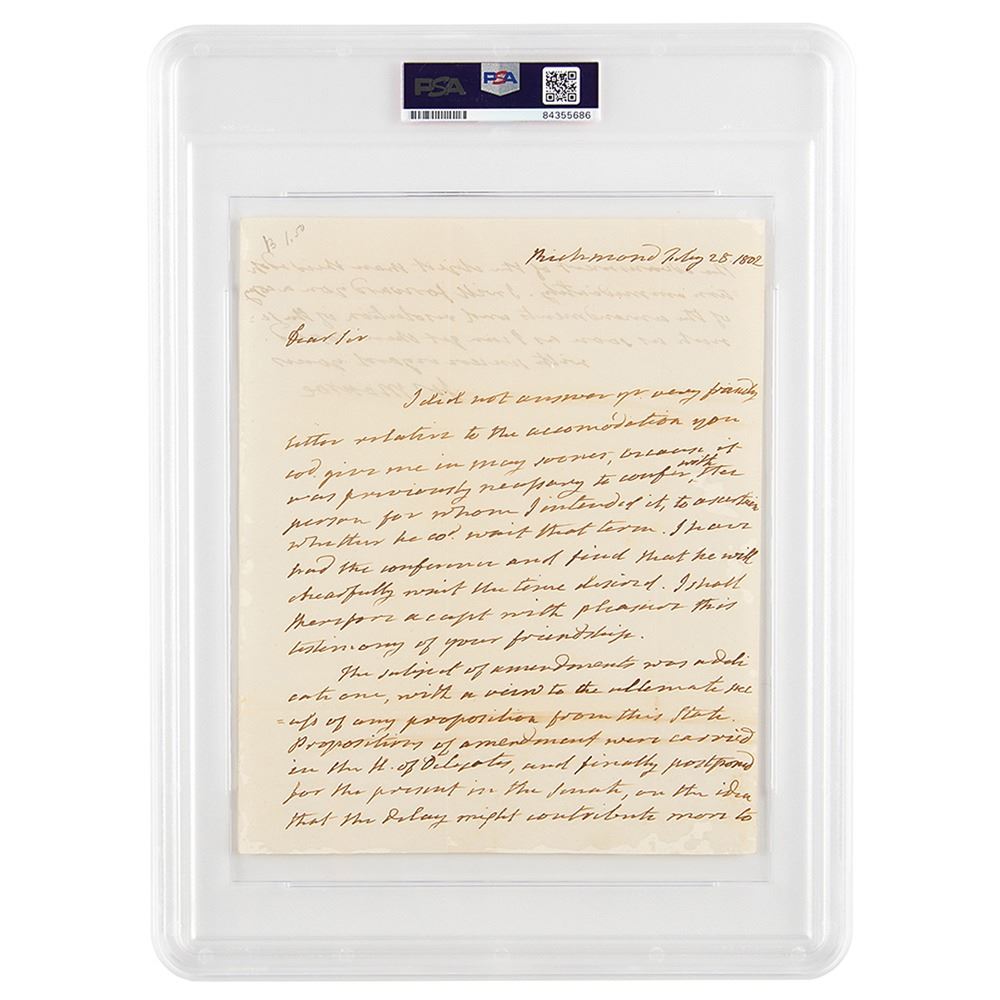 PSA
PSA
84355686
$1.50
Richmond Feby 28. 1802
Dear Sir
I did not answer yr very friendly
letter relative to the accomodation you
cod. give me in may sooner, because it
was previously necessary to confer, with the
person for whom I intended it, to ascertain
whether he cod. wait that term. I have
had the conference and find that he will
chearfully wait the time desired. I shall
therefore accept with pleasure this
testimony of your friendship.
The subject of amendments was a deli
cate one, with a view to the ultimate suc
=cess of any proposition from this State.
Propositions of amendment were carried
in the H. of Delegates, and finally postponed
for the present in the Senate, on the idea
that the delay might contribute more to